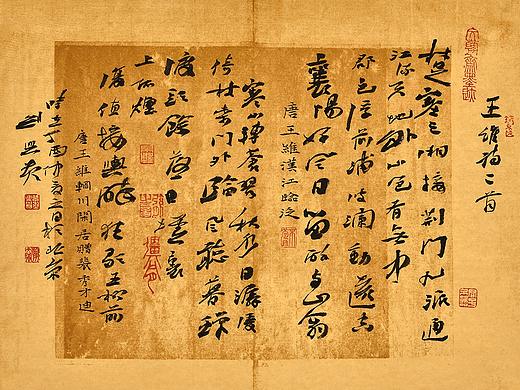 王維詩二首
楚塞三湘接荊門九派通
江流天地外山色有無中
郡邑浮前浦波瀾動遠空
襄陽好風日留醉與山翁
唐王維漢江臨泛
寒山轉蒼翠秋水日潺湲
倚杖柴門外臨風聽暮蟬
渡頭餘落日墟裏
上孤煙
復值接輿醉狂歌五柳前
唐王維輞川閒居贈裴秀才迪
丁酉仲夏日於北京